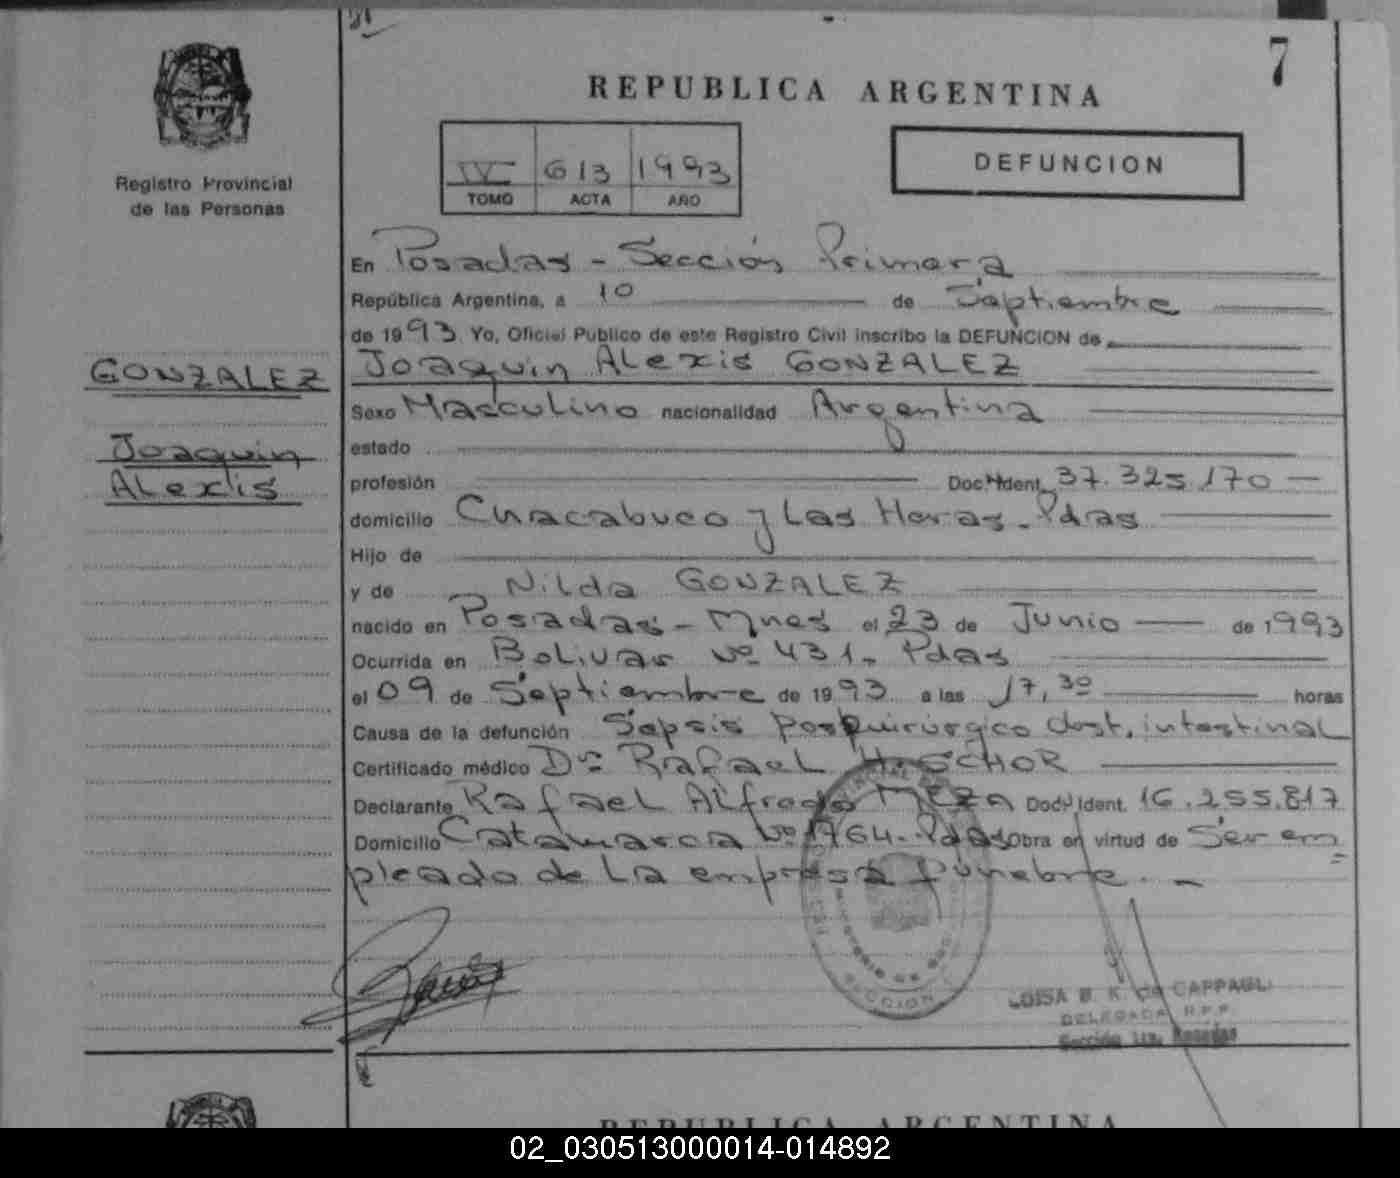 7
REPUBLICA ARGENTINA
Registro Provincial
de las Personas
IV 613 1993
TOMO ACTA AÑO
DEFUNCION
En Posadas - Sección Primera
República Argentina, a 10 de Septiembre
de 1993 Yo, Oficial Público de este Registro Civil inscribo la DEFUNCION de
GONZALEZ
Joaquin
Alexis
Joaquin Alexis GONZALEZ
Sexo Masculino nacionalidad Argentina
estado
profesión Doc. Ident. 37.325.170
domicilio Chacabuco y Las Heras - Pdas
Hijo de
y de Nilda GONZALEZ
nacido en Posadas - Mnes el 23 de Junio de 1993
Ocurrida en Bolivar Nº 431. Pdas
el 09 de Septiembre de 1993 a las 17,30 horas
Causa de la defunción Sepsis Posquirúrgico intestinal
Certificado médico Dr. Rafael H. SCHOR
Declarante Rafael Alfredo MEZA Doc. Ident. 16.255.817
Domicilio Catamarca Nº 1764 - Pdas obra en virtud de Ser em
pleado de La empresa fúnebre. -
SECCION
LOISA B. K. de CAPPAGLI
DELEGADA R.P.P.
Sección 1ra. Posadas
REPUBLICA ARGENTINA
02_030513000014-014892